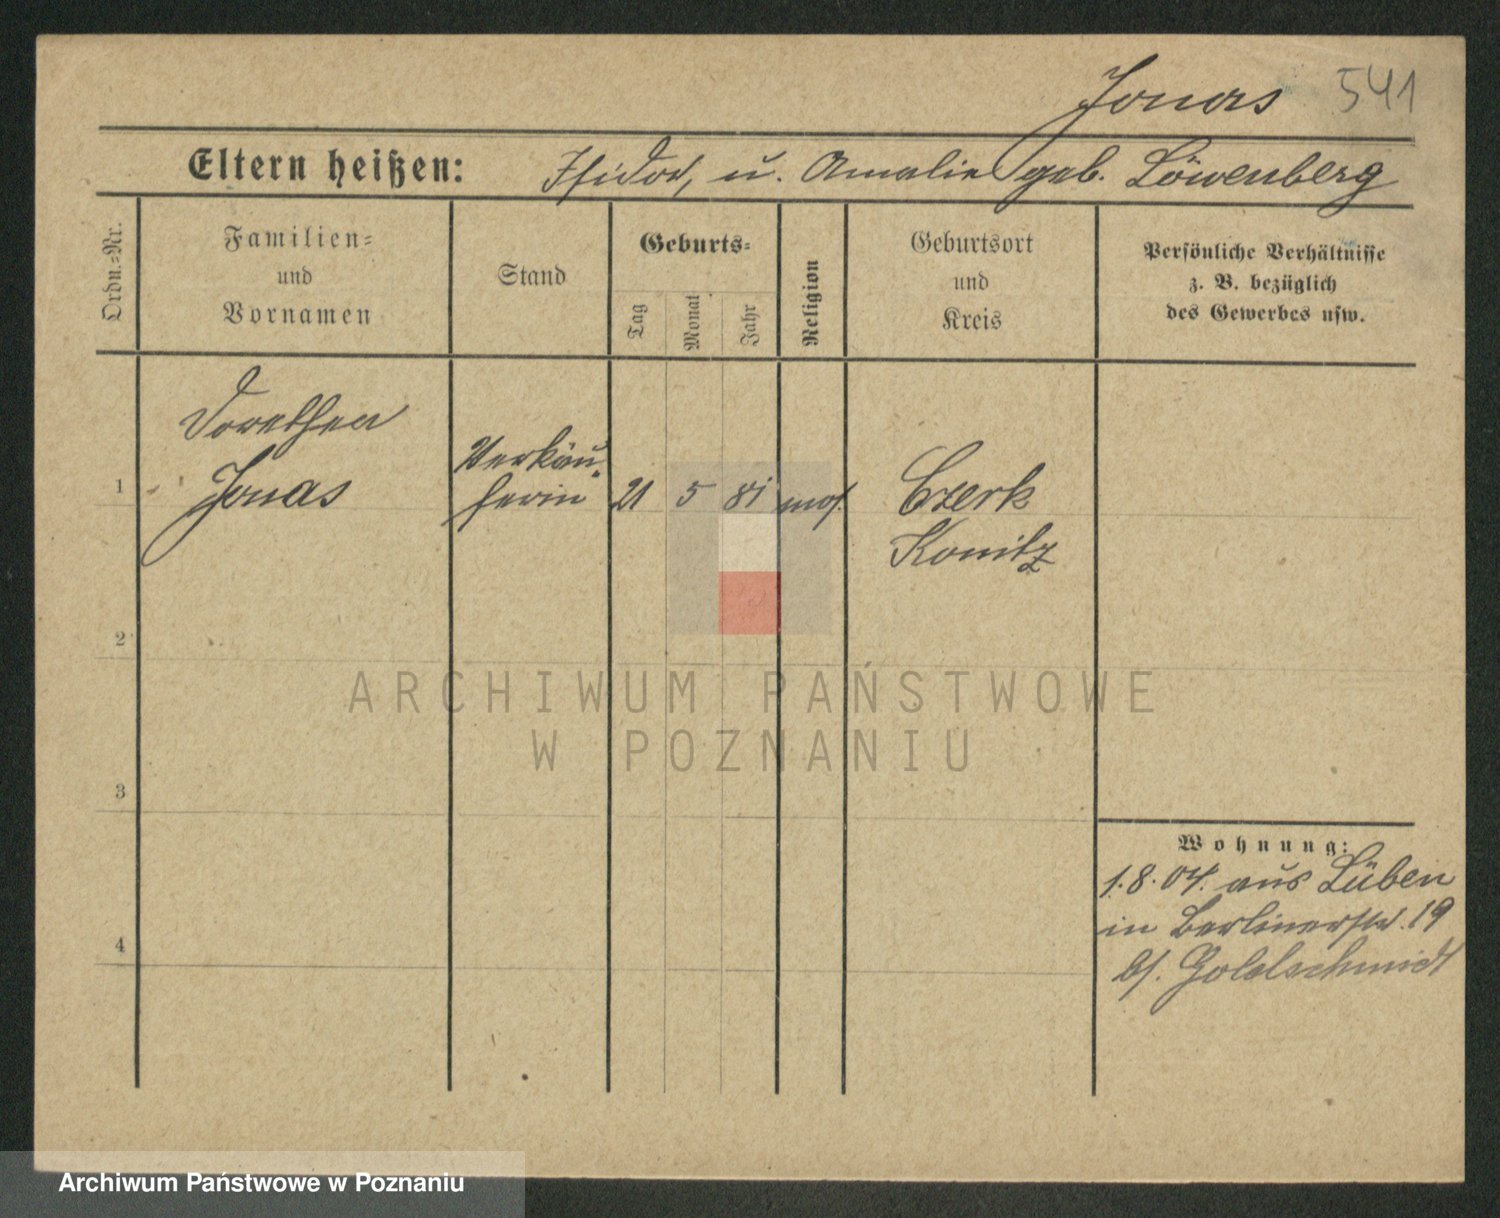 Jonas 541
Eltern heißen: Isidor, u. Amalie geb. Löwenberg
Ordn.-Nr.
Familien-
und
Vornamen
Stand
Geburts-
Tag
Monat
Jahr
Religion
Geburtsort
und
Kreis
Persönliche Verhältnisse
z. B. bezüglich
des Gewerbes usw.
1
Dorethea
Jonas
Verkäu-
ferin
21
5
81
mos.
Czersk
Konitz
2
3
4
Wohnung:
1.8.04. aus Lüben
in Berlinerstr. 19
bs. Goldschmidt
ARCHIWUM PAŃSTWOWE
W POZNANIU
Archiwum Państwowe w Poznaniu